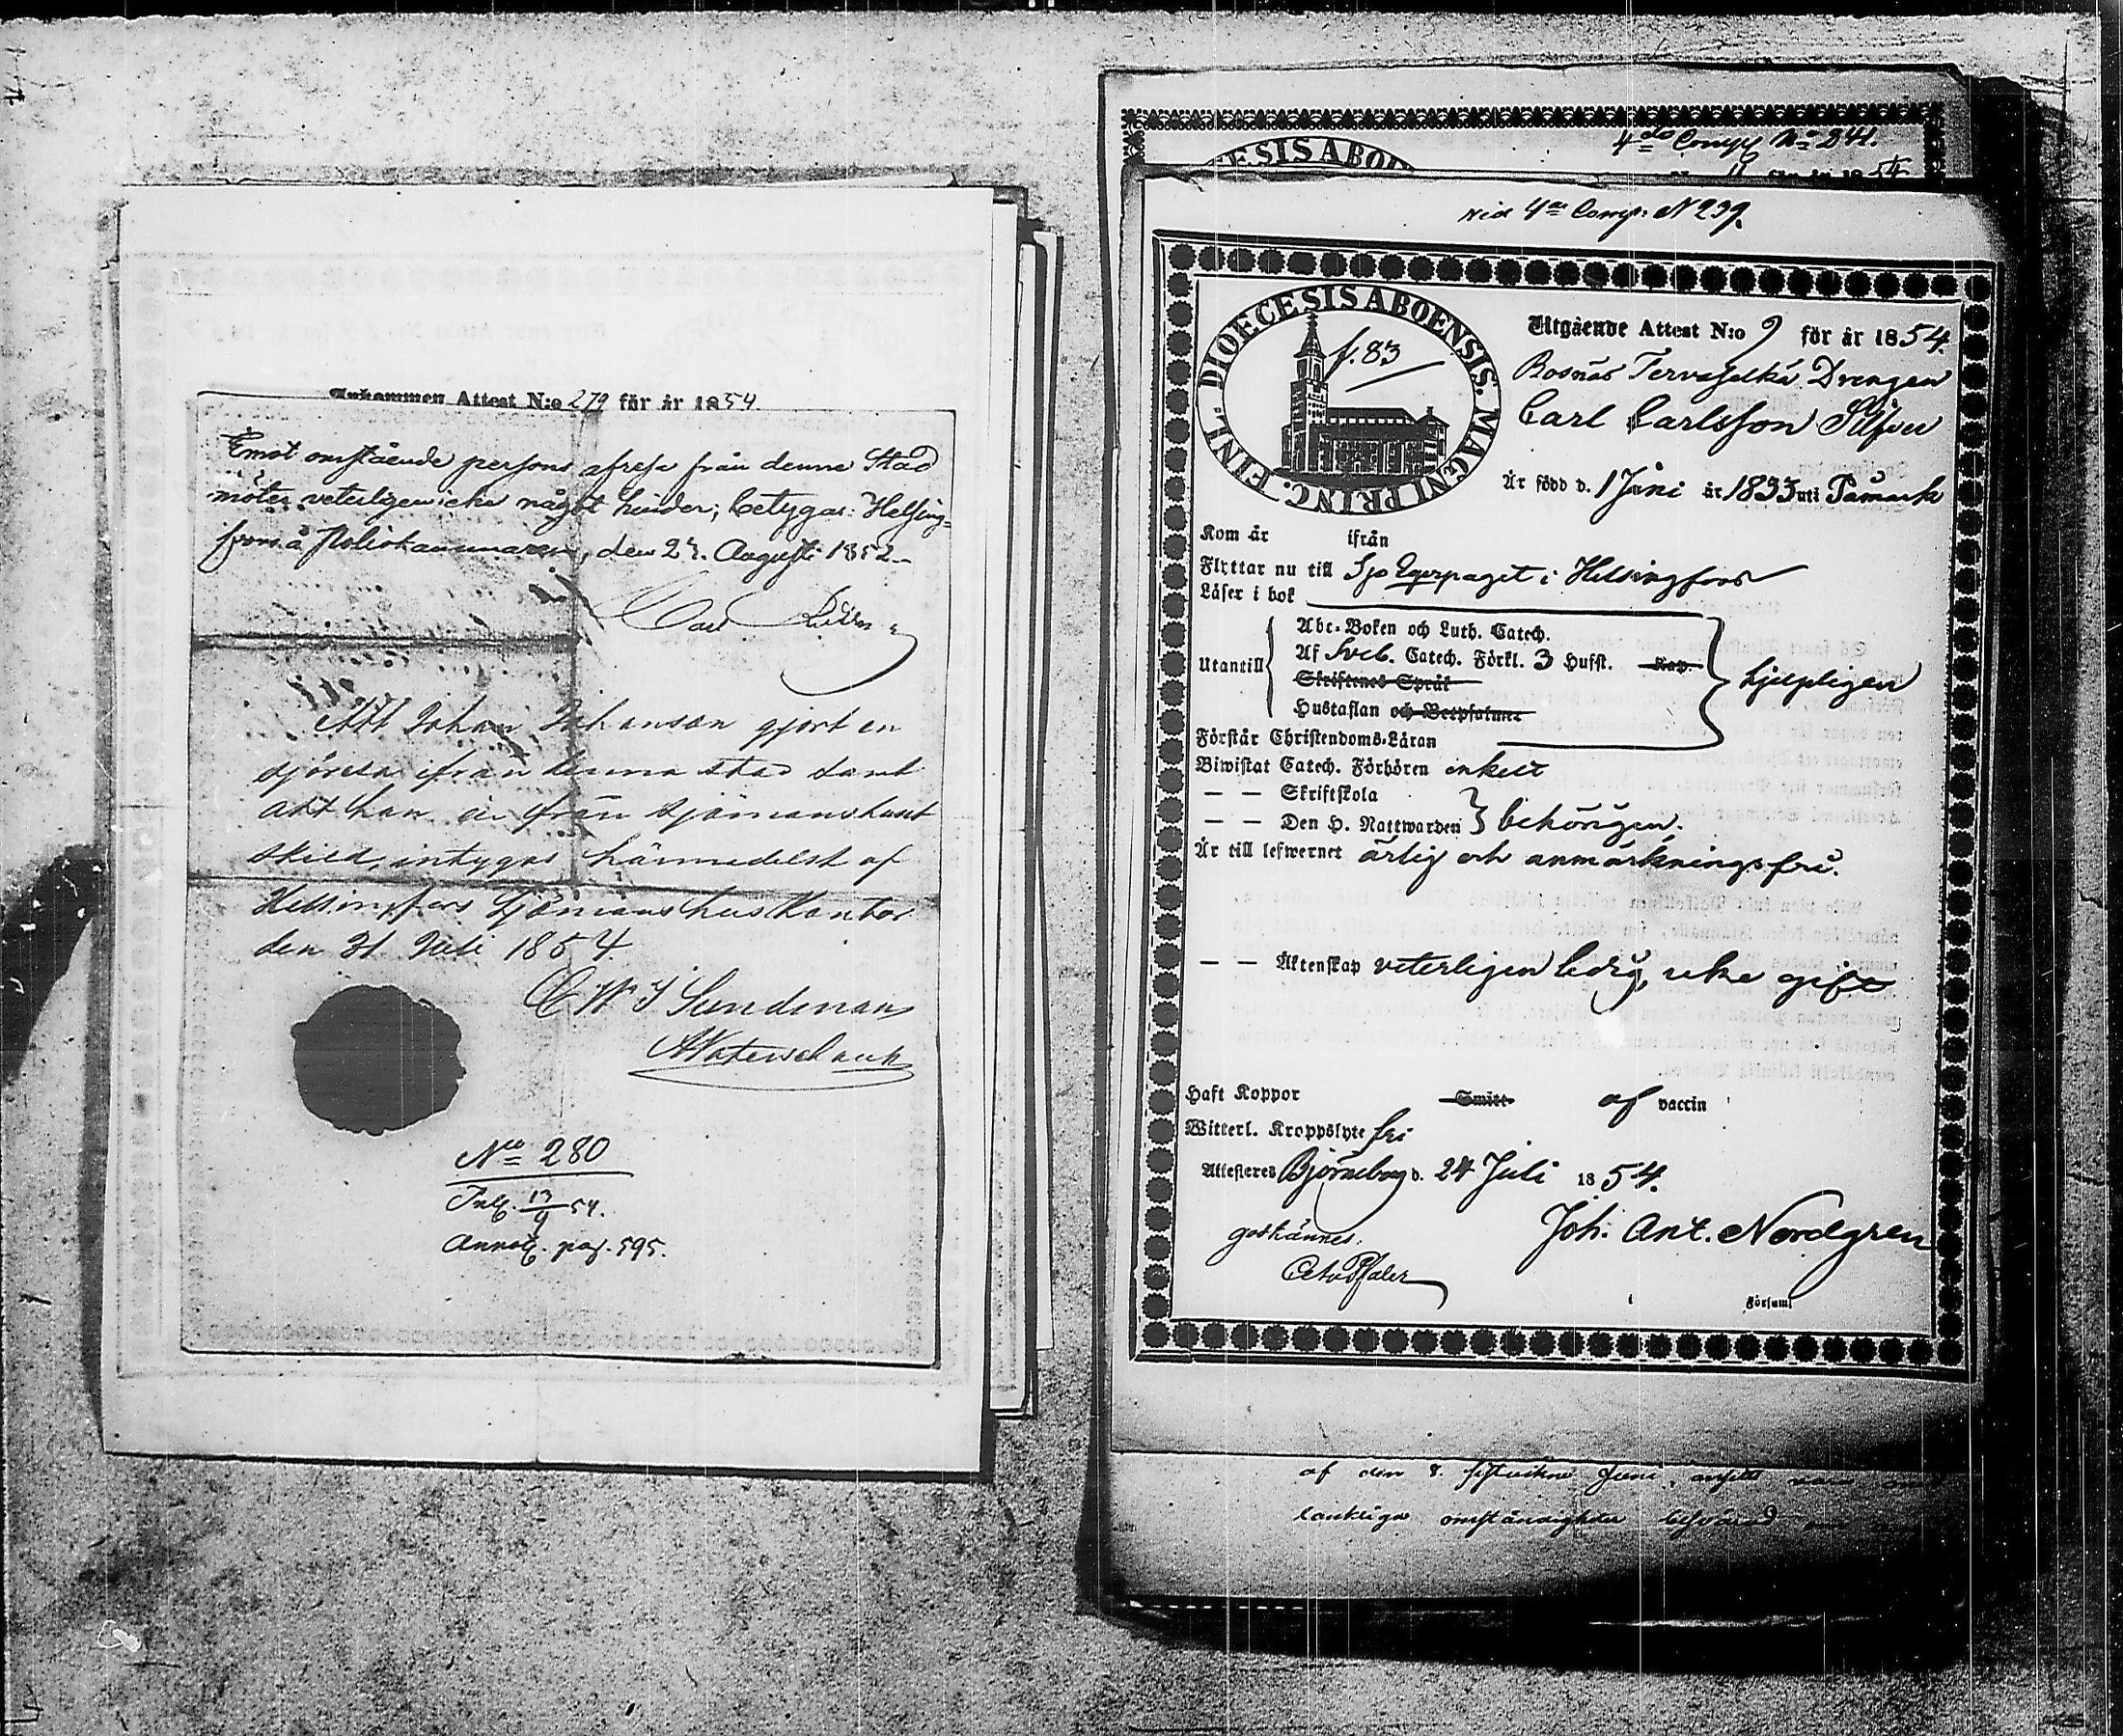 Inkommen Attest N:o 279 för år 1854.
Emot omstående persons afresa från denne Stad
möter veterligen icke något hinder; betygar. Helsing=
fors å Poliskammaren, den 24. Augusti 1852.
Carl
Att Johan Johansson gjort en
sjöresa ifrån denna stad samt
att han är från sjömanshuset
skild, intygas härmedelst af
Helsingfors Sjömanshus Kontor
den 31 Juli 1854.
C W J Sundman
No 280
Inl. 13/9 54.
Annot. pag. 595.
4de Comp No 241.
DIOECESIS ABOENSIS
N:o 11 för år 1854
vid 4de Comp: N 239.
DIOECESIS ABOENSIS. MAGNI PRINC. FINL.
f. 83
Utgående Attest N:o 9 för år 1854.
Bosnäs Drengen
Carl Carlsson Silfver
Är född d. 1 Juni år 1833 uti Påmark
Kom år ifrån
Flyttar nu till Sjö Eqvipaget i Helsingfors
Läser i bok
Utantill
Abc-Boken och Luth. Catech.
Af Sveb. Catech. Förkl. 3 Hufst. Kap.
Skriftenes Språk
Hustaflan och Botpsalmer
hjelpligen
Förstår Christendoms-Läran
Biwistat Catech. Förhören enkelt
— — Skriftskola
— — Den H. Nattwarden behörigen.
Är till lefwernet ärlig och anmärkningsfri.
— — Äktenskap veterligen ledig, icke gift
Haft Koppor Smitt- af vaccin
Witterl. Kroppslyte fri
Attesteres Björneborg d. 24 Juli 1854.
godkännes: Joh. Ant. Nordgren
Församl.
af den 8. sistvikne Juni,
omständigheter besvärad